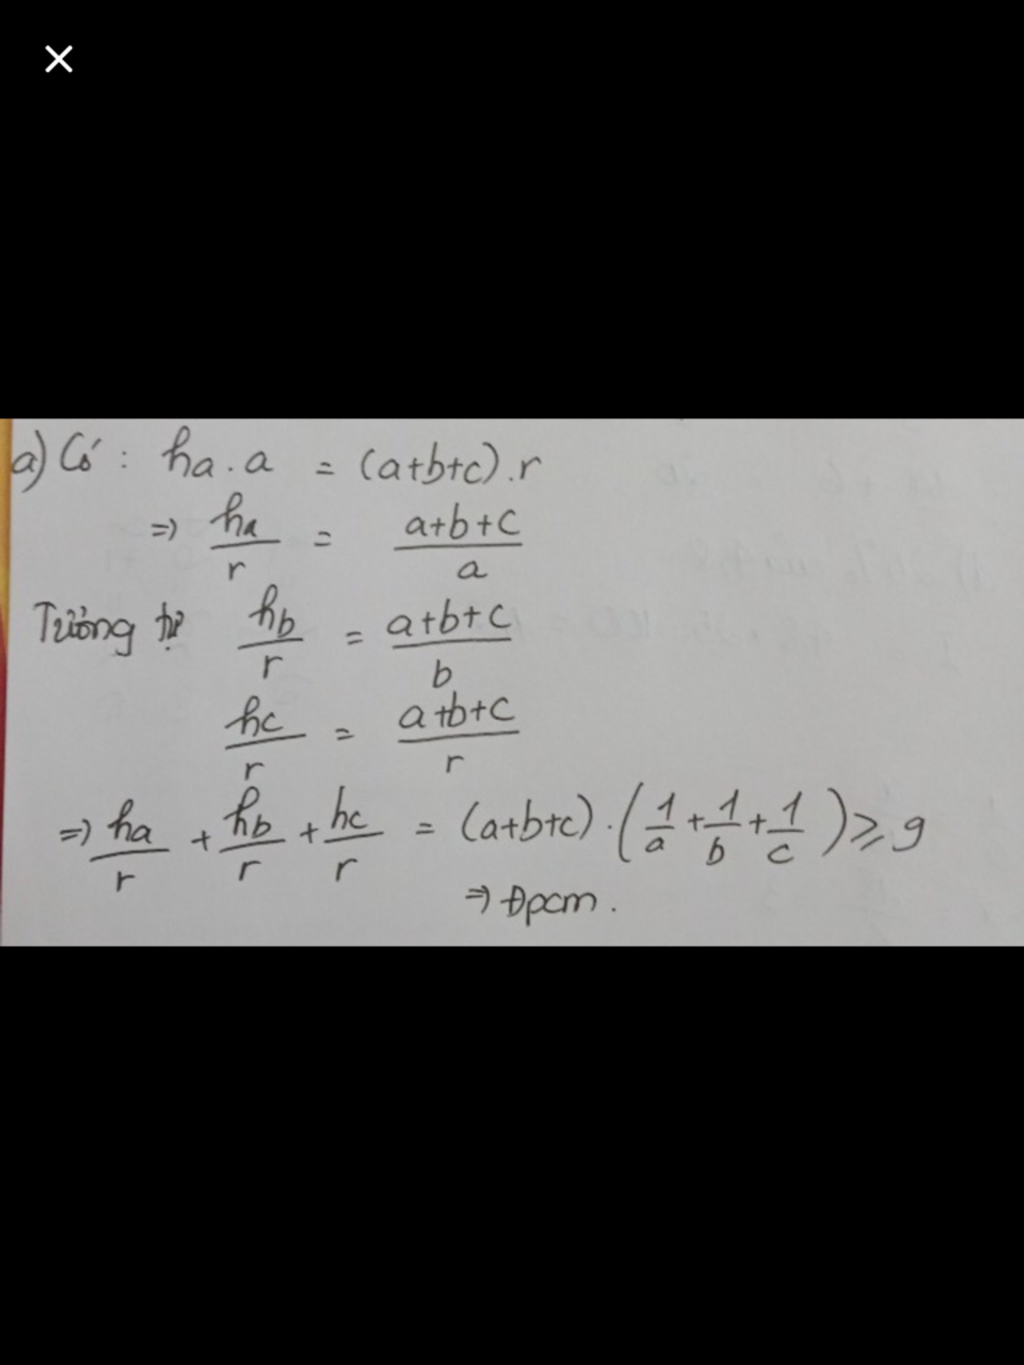 a) Có : ha . a = (a+b+c) . r
=> ha/r = a+b+c/a
Tương tự hb/r = a+b+c/b
hc/r = a+b+c/r
=> ha/r + hb/r + hc/r = (a+b+c) . (1/a + 1/b + 1/c) ⩾ 9
=> Đpcm .